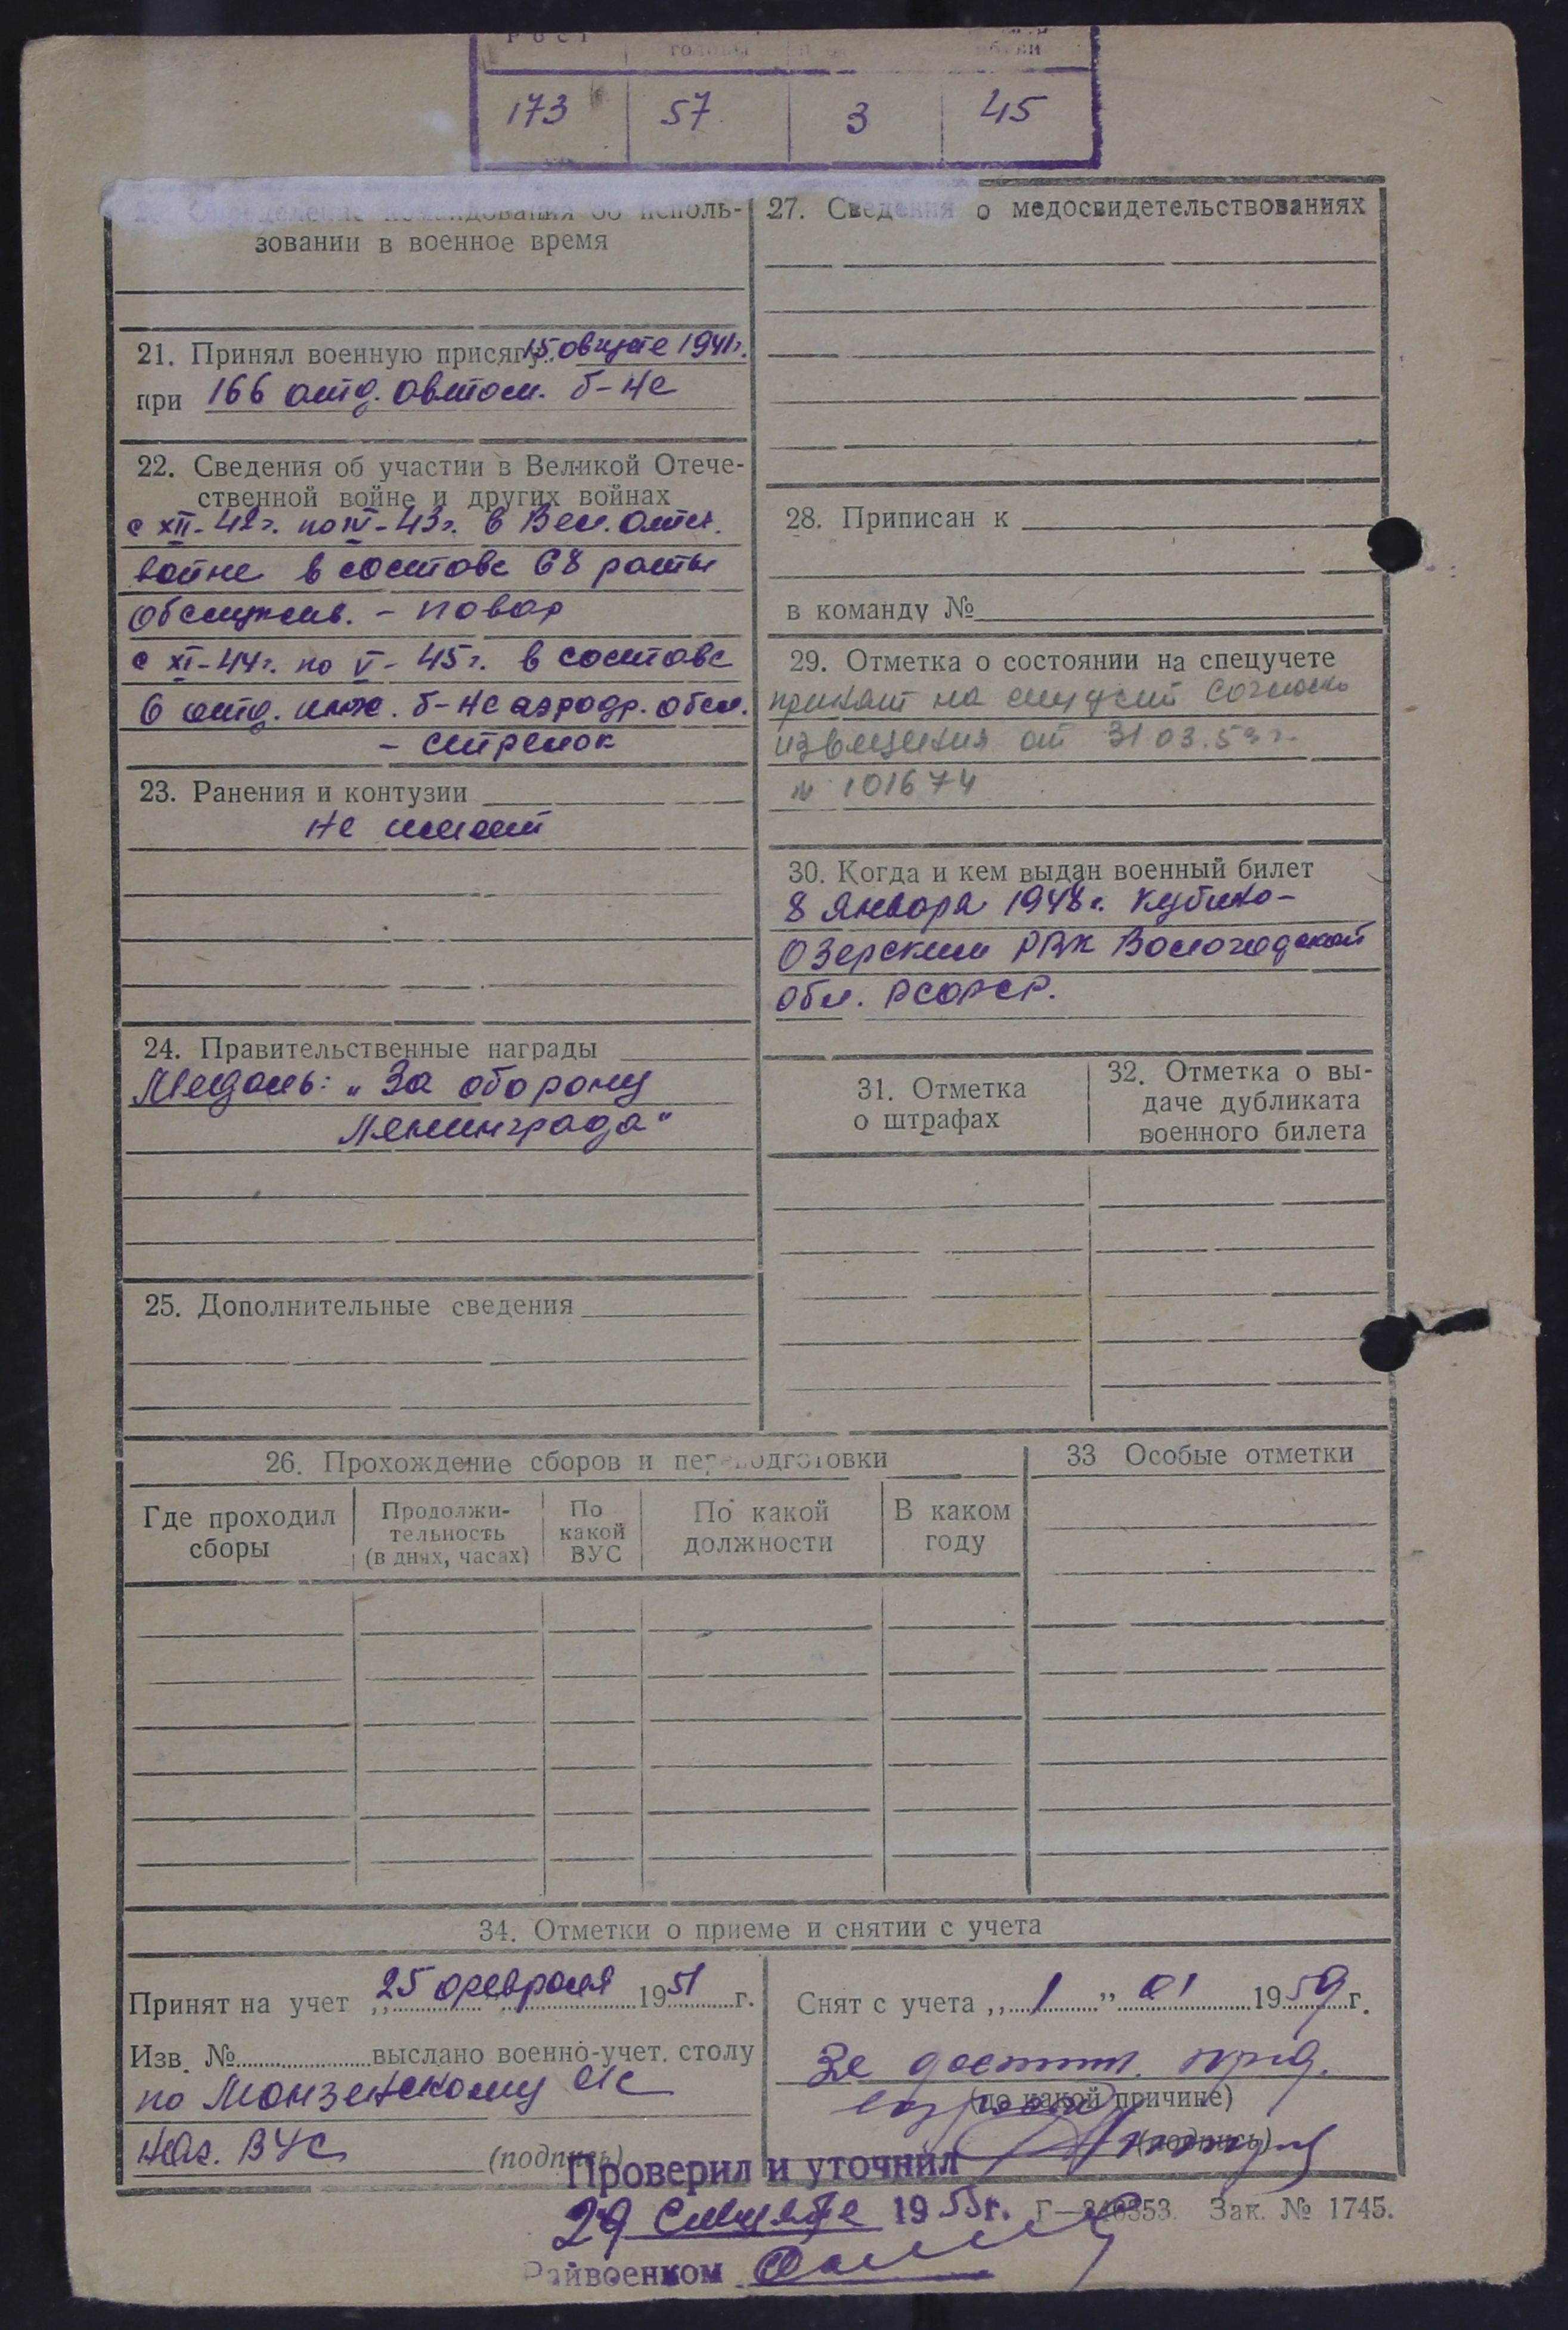 Рост головы
173 57 3 45
Определение командования об исполь-
зовании в военное время
21. Принял военную присягу 15 августа 1941г.
при 166 отд. автом. б-не
22. Сведения об участии в Великой Отече-
ственной войне и других войнах
с XII-42г. по IV-43г. в Вел. отеч.
войне в составе 68 роты
обслужив. - повар
с XI-44г. по V-45г. в составе
6 отд. инж. б-не аэродр. обсл.
- стрелок
23. Ранения и контузии
не имеет
24. Правительственные награды
Медаль: „За оборону
Ленинграда"
25. Дополнительные сведения
27. Сведения о медосвидетельствованиях
28. Приписан к
в команду №
29. Отметка о состоянии на спецучете
принят на спецучет согласно
извещения от 31.03.53г.
№ 101674
30. Когда и кем выдан военный билет
8 января 1948г. Кубино-
Озерским РВК Вологодской
обл. РСФСР.
31. Отметка
о штрафах
32. Отметка о вы-
даче дубликата
военного билета
26. Прохождение сборов и переподготовки
Где проходил
сборы
Продолжи-
тельность
(в днях, часах)
По
какой
ВУС
По какой
должности
В каком
году
33 Особые отметки
34. Отметки о приеме и снятии с учета
Принят на учет „25 февраля 1951 г.
Изв. № выслано военно-учет. столу
по Монзенскому с/с
Нач. ВУС
(подпись)
Снят с учета „1" 01 1959 г.
за достиж. пред.
возраста
(по какой причине)
(подпись)
Проверил и уточнил
29 1955г. Г—346553. Зак. № 1745.
Райвоенком